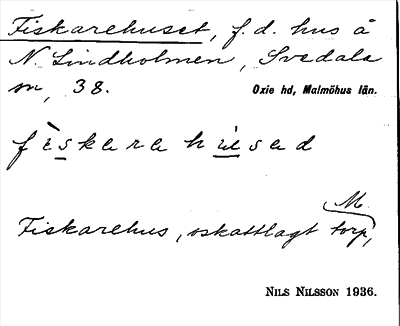 Fiskarehuset, f.d. hus å
N. Lindholmen, Svedala
sn, 38.
Oxie hd, Malmöhus län.
fìskarahusad
M.
Fiskarehus, oskattlagt torp,
NILS NILSSON 1936.